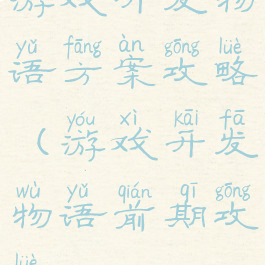 游戏开发物
yǔ fāng àn gōng lüè
语方案攻略
yóu xì kāi fā
（游戏开发
wù yǔ qián qī gōng
物语前期攻
lüè